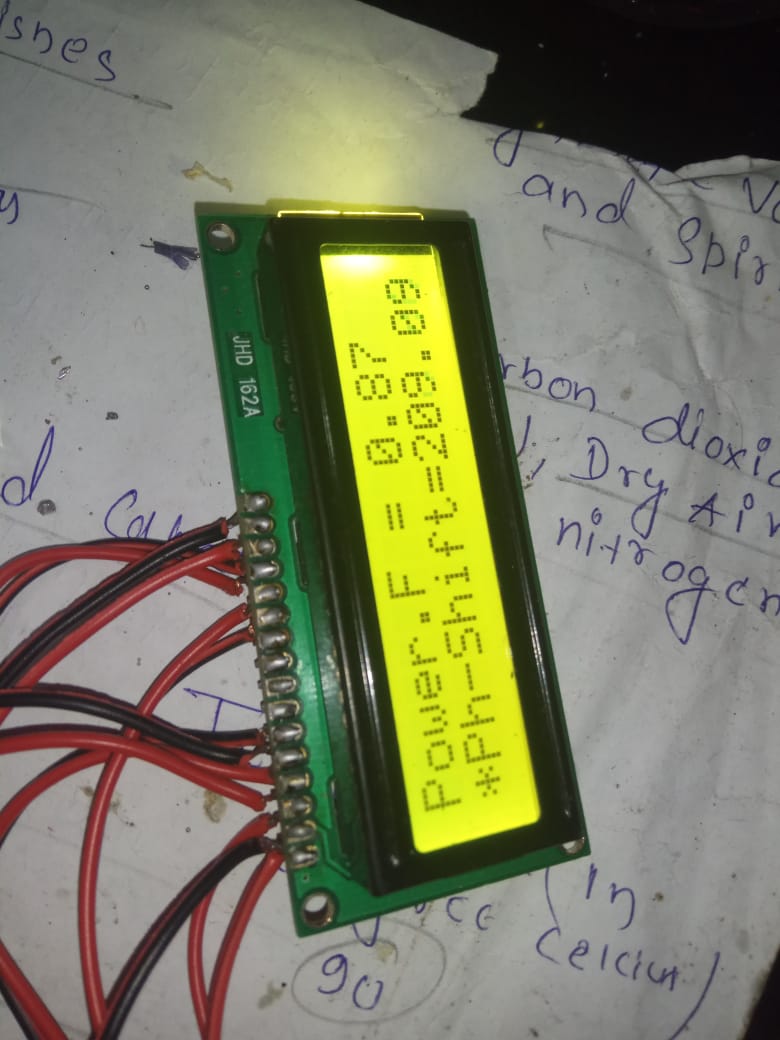 ishes
and
Spir
JHD 162A
Power.F = 0.87
*Ph-Shift=208.00
rbon dioxid
Dry Air
nitrogen
d
(in
celcius)
90